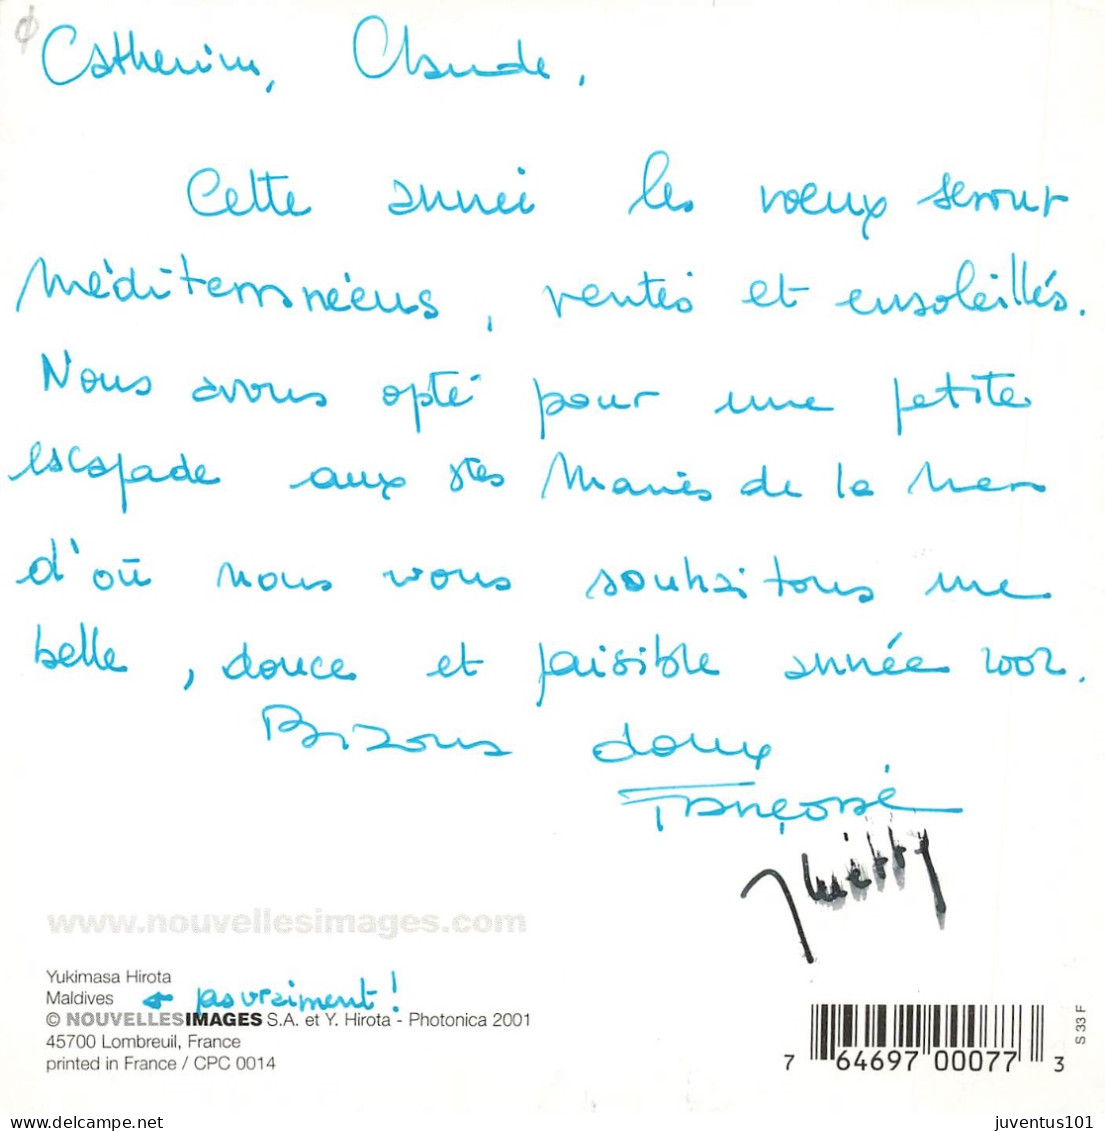 Catherine, Claude,
Cette année les vœux seront
méditerranéens, ventés et ensoleillés.
Nous avons opté pour une petite
escapade aux Stes Maries de la Mer
d'où nous vous souhaitons une
belle, douce et paisible année 2002.
Bizous doux
Françoise
Thierry
www.nouvellesimages.com
Yukimasa Hirota
Maldives ← pas vraiment !
© NOUVELLESIMAGES S.A. et Y. Hirota - Photonica 2001
45700 Lombreuil, France
printed in France / CPC 0014
7 64697 00077 3
S 33 F
delcampe.net
juventus101